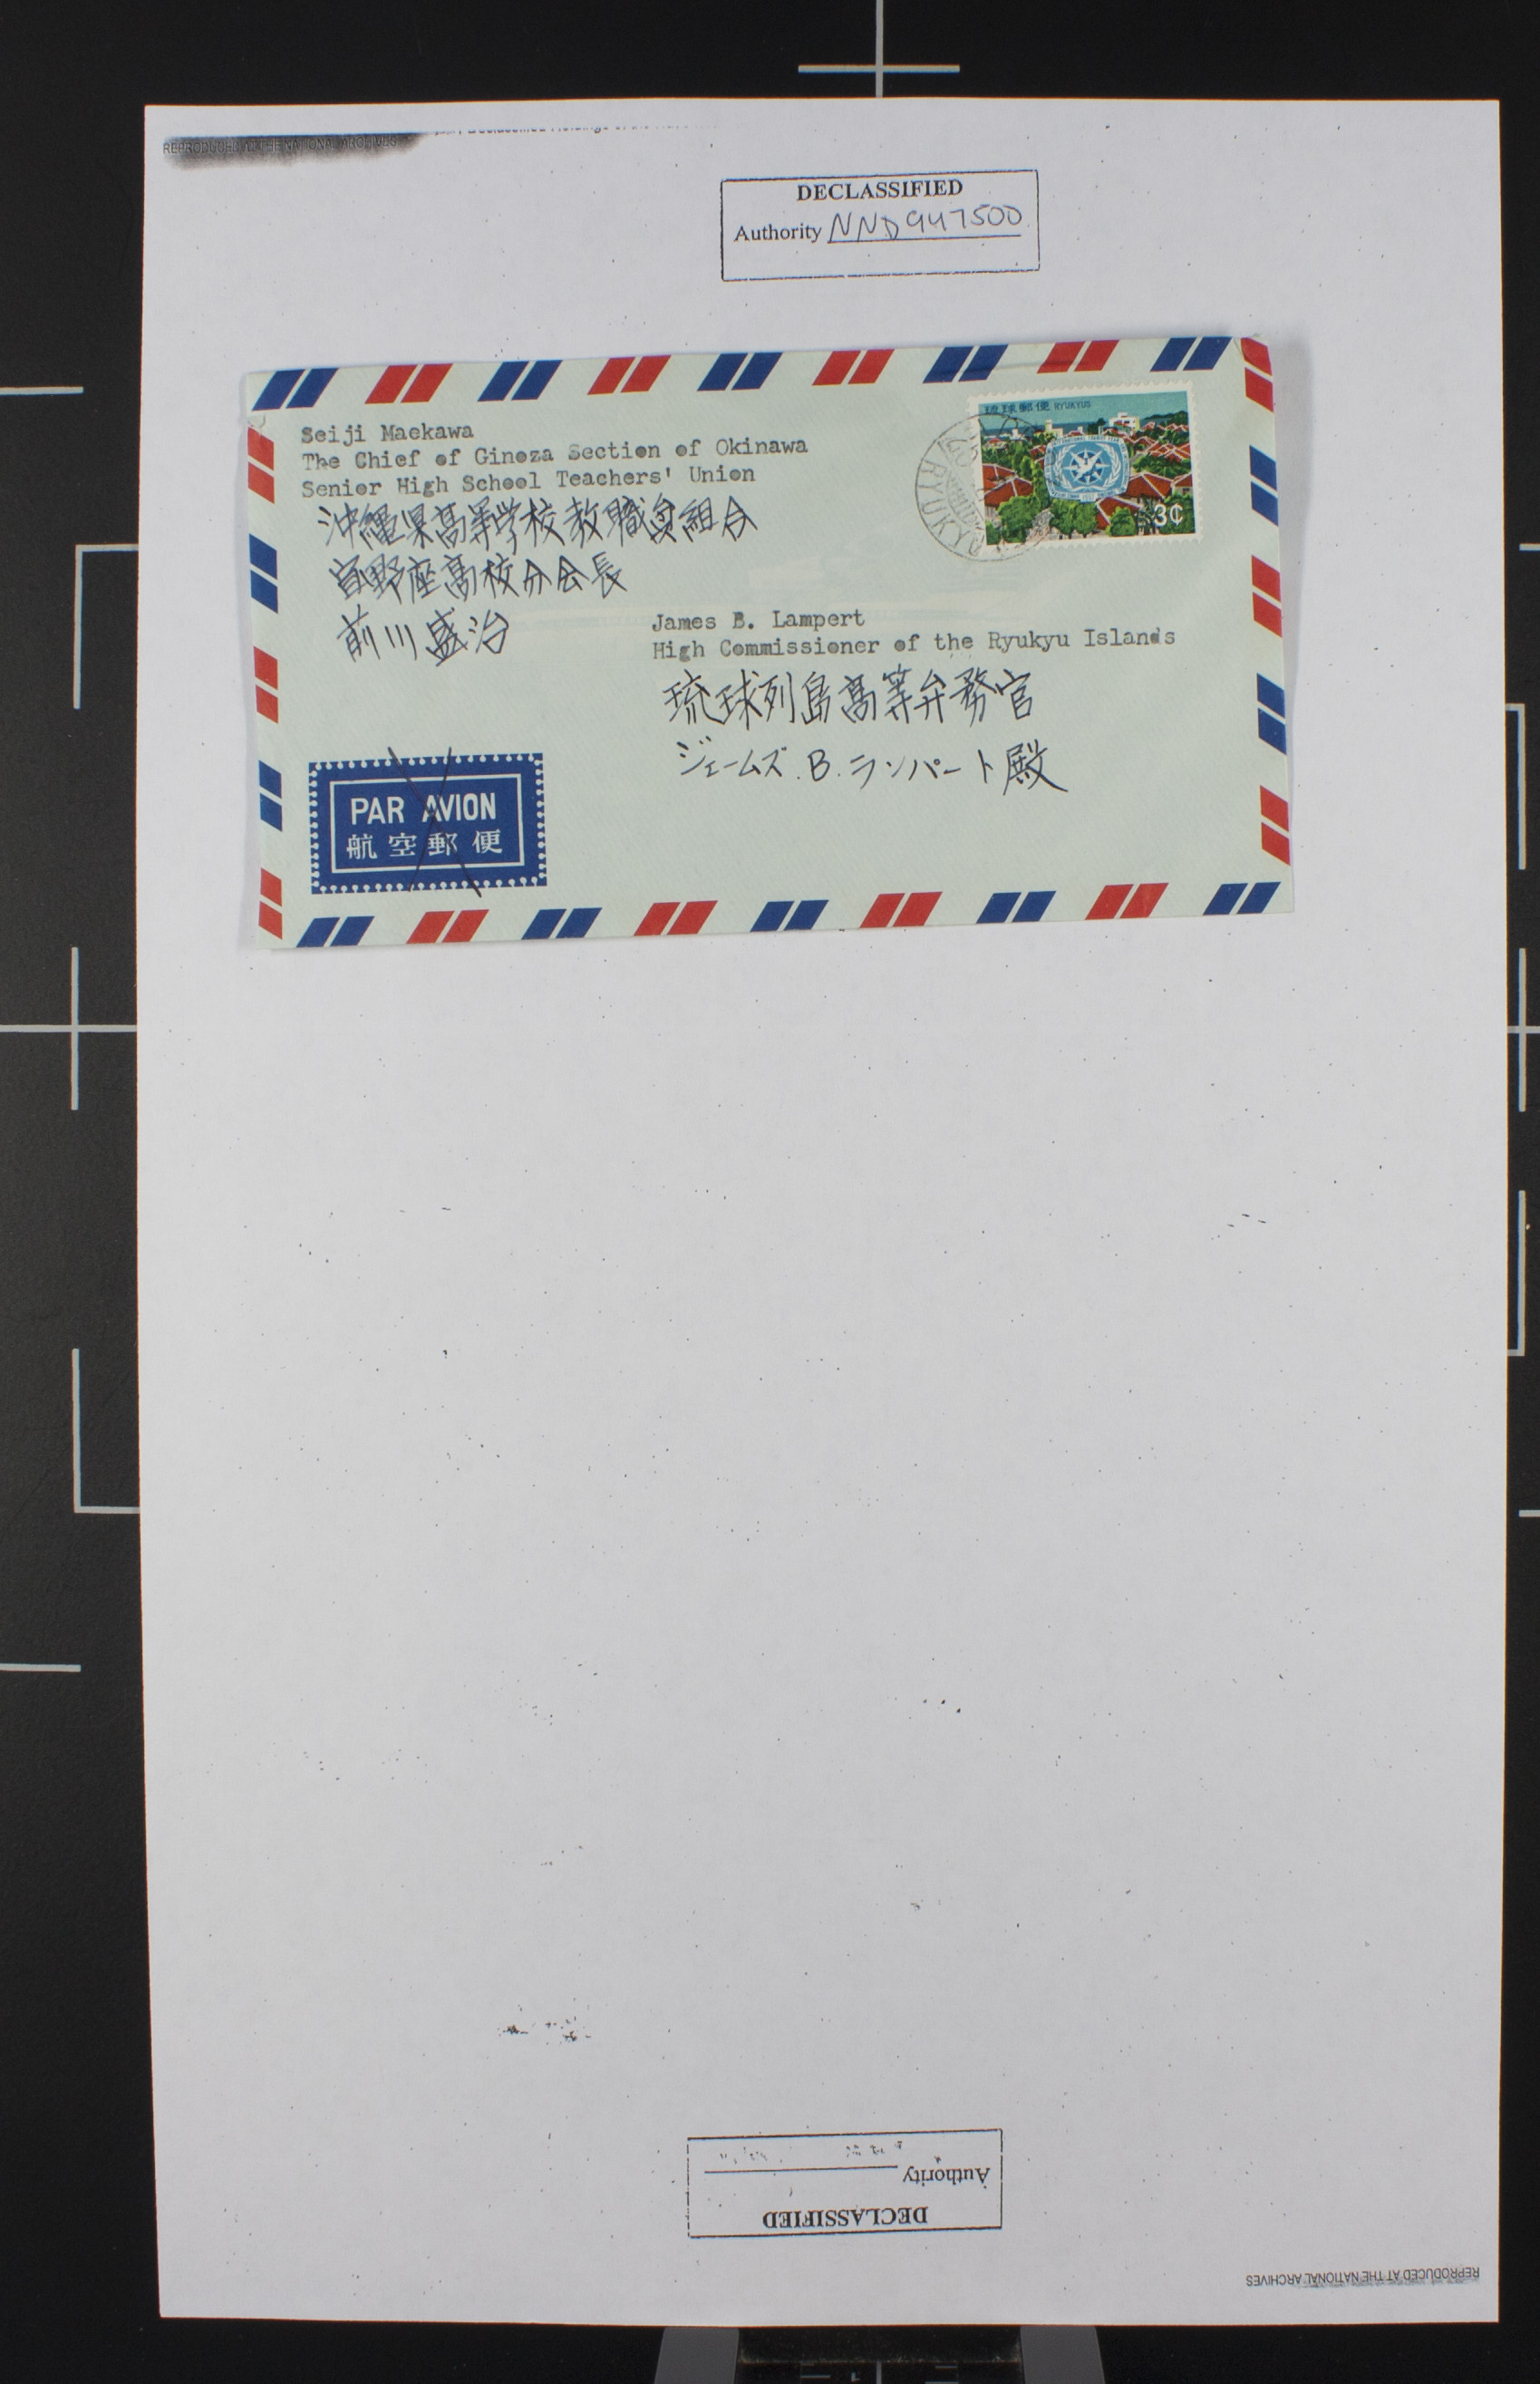 REPRODUCED AT THE NATIONAL ARCHIVES
DECLASSIFIED
Authority NND947500
Seiji Maekawa
The Chief of Ginoza Section of Okinawa
Senior High School Teachers' Union
沖縄県高等学校教職員組合
宜野座高校分会長
前川盛治
琉球郵便 RYUKYUS
3¢
RYUKYU
James B. Lampert
High Commissioner of the Ryukyu Islands
琉球列島高等弁務官
ジェームズ.B.ランパート殿
PAR AVION
航空郵便
Authority
DECLASSIFIED
REPRODUCED AT THE NATIONAL ARCHIVES